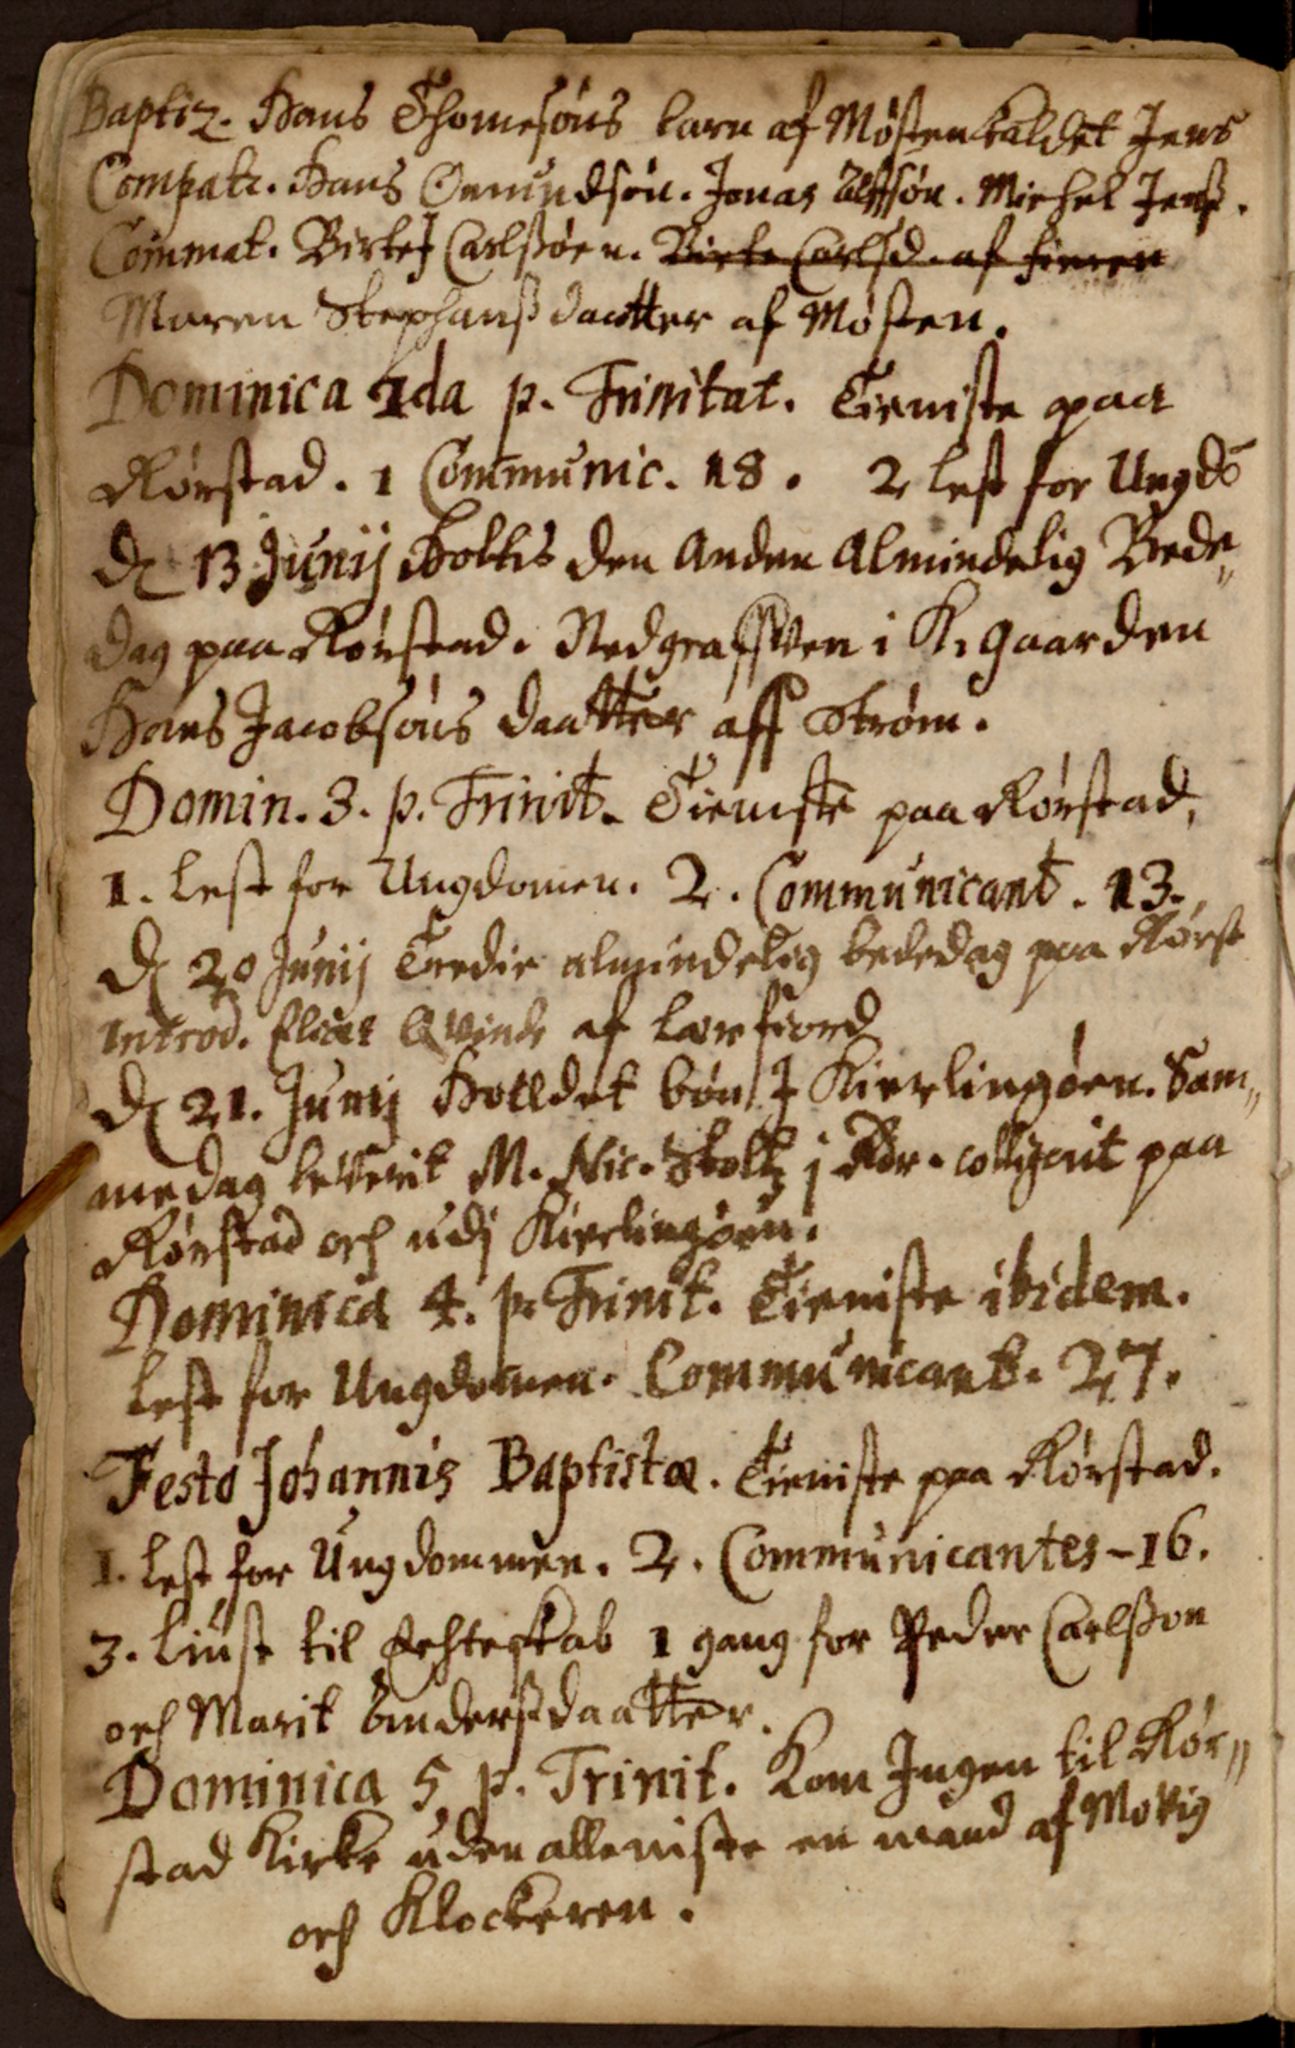 Baptiz. Hans Thomesøns barn af Møsten kaldet Jens
Compatr. Hans Omundsøn. Jonas Olssøn. Michel Jenß.
Commat. Birte J Carlsøen. Birte Carlsd. af
Maren Stephanß daatter af Møsten.
Dominica 2da p. Trinitat. Tieniste paa
Rørstad. 1 Communic. 18. 2 lest for Ungdō
D 13 Junij Holtis den Anden Almindelig Bede„
dag paa Rørstad. Nedgraffven i K.gaarden
Hans Jacobsøns daatter aff Strøm.
Domin. 3. p. Trinit. Tieniste paa Rørstad,
1. lest for Ungdomen. 2. Communicant. 13.
D 20 Junij Tredie almindelig bededag paa Rørst
Introd. Qvinde af Lærfiord
D 21. Junij Holldet bøn J Kierlingøen. Sam„
me dag leverit M. Nic. Stoltz j Rør. colligerit paa
Rørstad och udj Kierlingøen.
Dominica 4. p. Trinit. Tieniste ibidem.
lest for Ungdomen. Communicant. 27.
Festo Johannis Baptistæ. Tieniste paa Rørstad.
1. lest for Ungdommen. 2. Communicantes - 16.
3. liust til Echteskab 1 gang for Peder Carlsson
och Marit Anderßdaatter.
Dominica 5 p. Trinit. Kom Ingen til Rør„
stad Kirke uden alleniste en mand af Movig
och Klockeren.